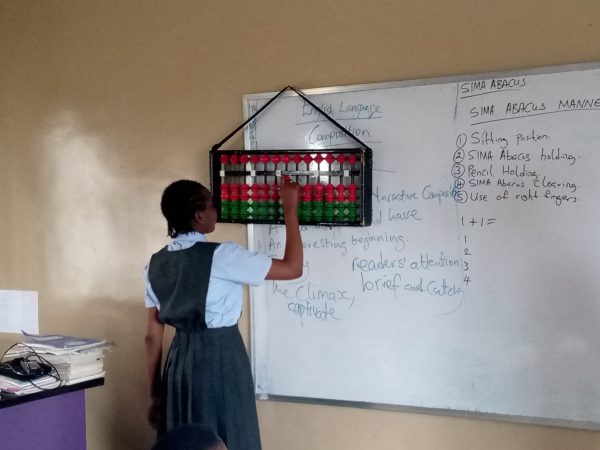 English Language
Composition
Narrative Composi
have
An interesting beginning.
readers' attention
The Climax, brief and Catchy
captivate
SIMA ABACUS
SIMA ABACUS MANNE
① Sitting Position.
② SIMA Abacus holding.
③ Pencil Holding.
④ SIMA Abacus Clearing.
⑤ Use of right fingers.
1 + 1 =
1
2
3
4